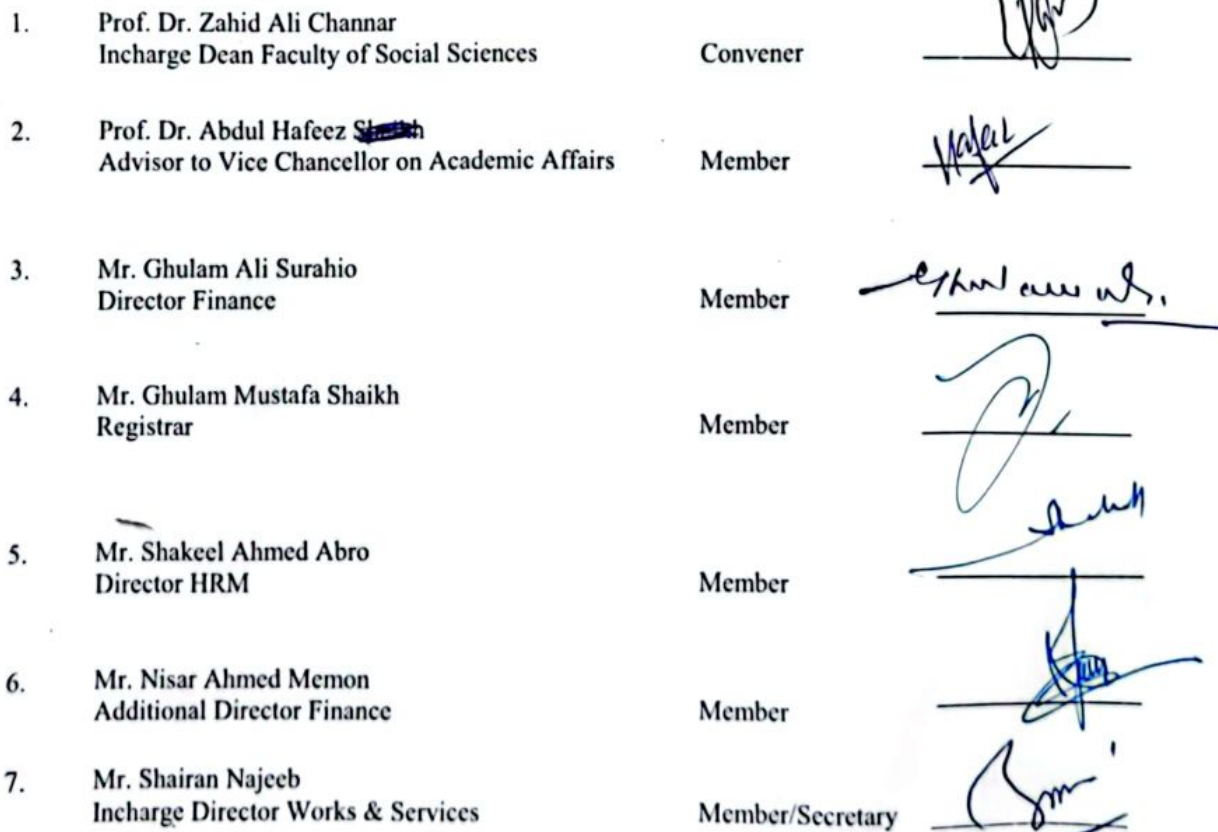 1. Prof. Dr. Zahid Ali Channar
Incharge Dean Faculty of Social Sciences Convener
2. Prof. Dr. Abdul Hafeez
Advisor to Vice Chancellor on Academic Affairs Member
Hafeez
3. Mr. Ghulam Ali Surahio
Director Finance Member
4. Mr. Ghulam Mustafa Shaikh
Registrar Member
5. Mr. Shakeel Ahmed Abro
Director HRM Member
6. Mr. Nisar Ahmed Memon
Additional Director Finance Member
7. Mr. Shairan Najeeb
Incharge Director Works & Services Member/Secretary